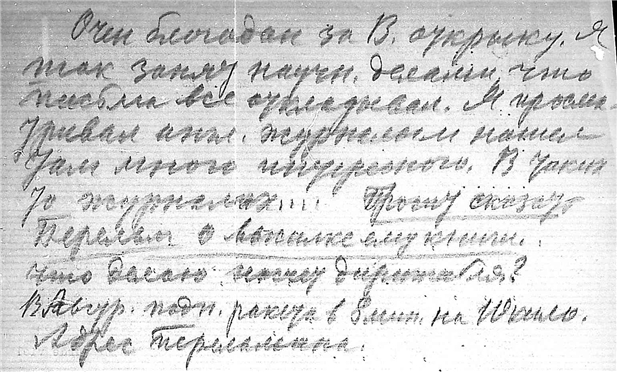 Очен благодан за В. откртку. Я
так занят научн. делами, что
письма все откладывал. Я просма-
тривал англ. журналы и нашел
там много интересного. В таких
то журналах.... Прошу сказат
Перельм о высылке ему книги.
Что делаю насчет дирижабля?
В Австр. подн. ракета в 8 мин. на 10 кило.
Адрес Перельмана.